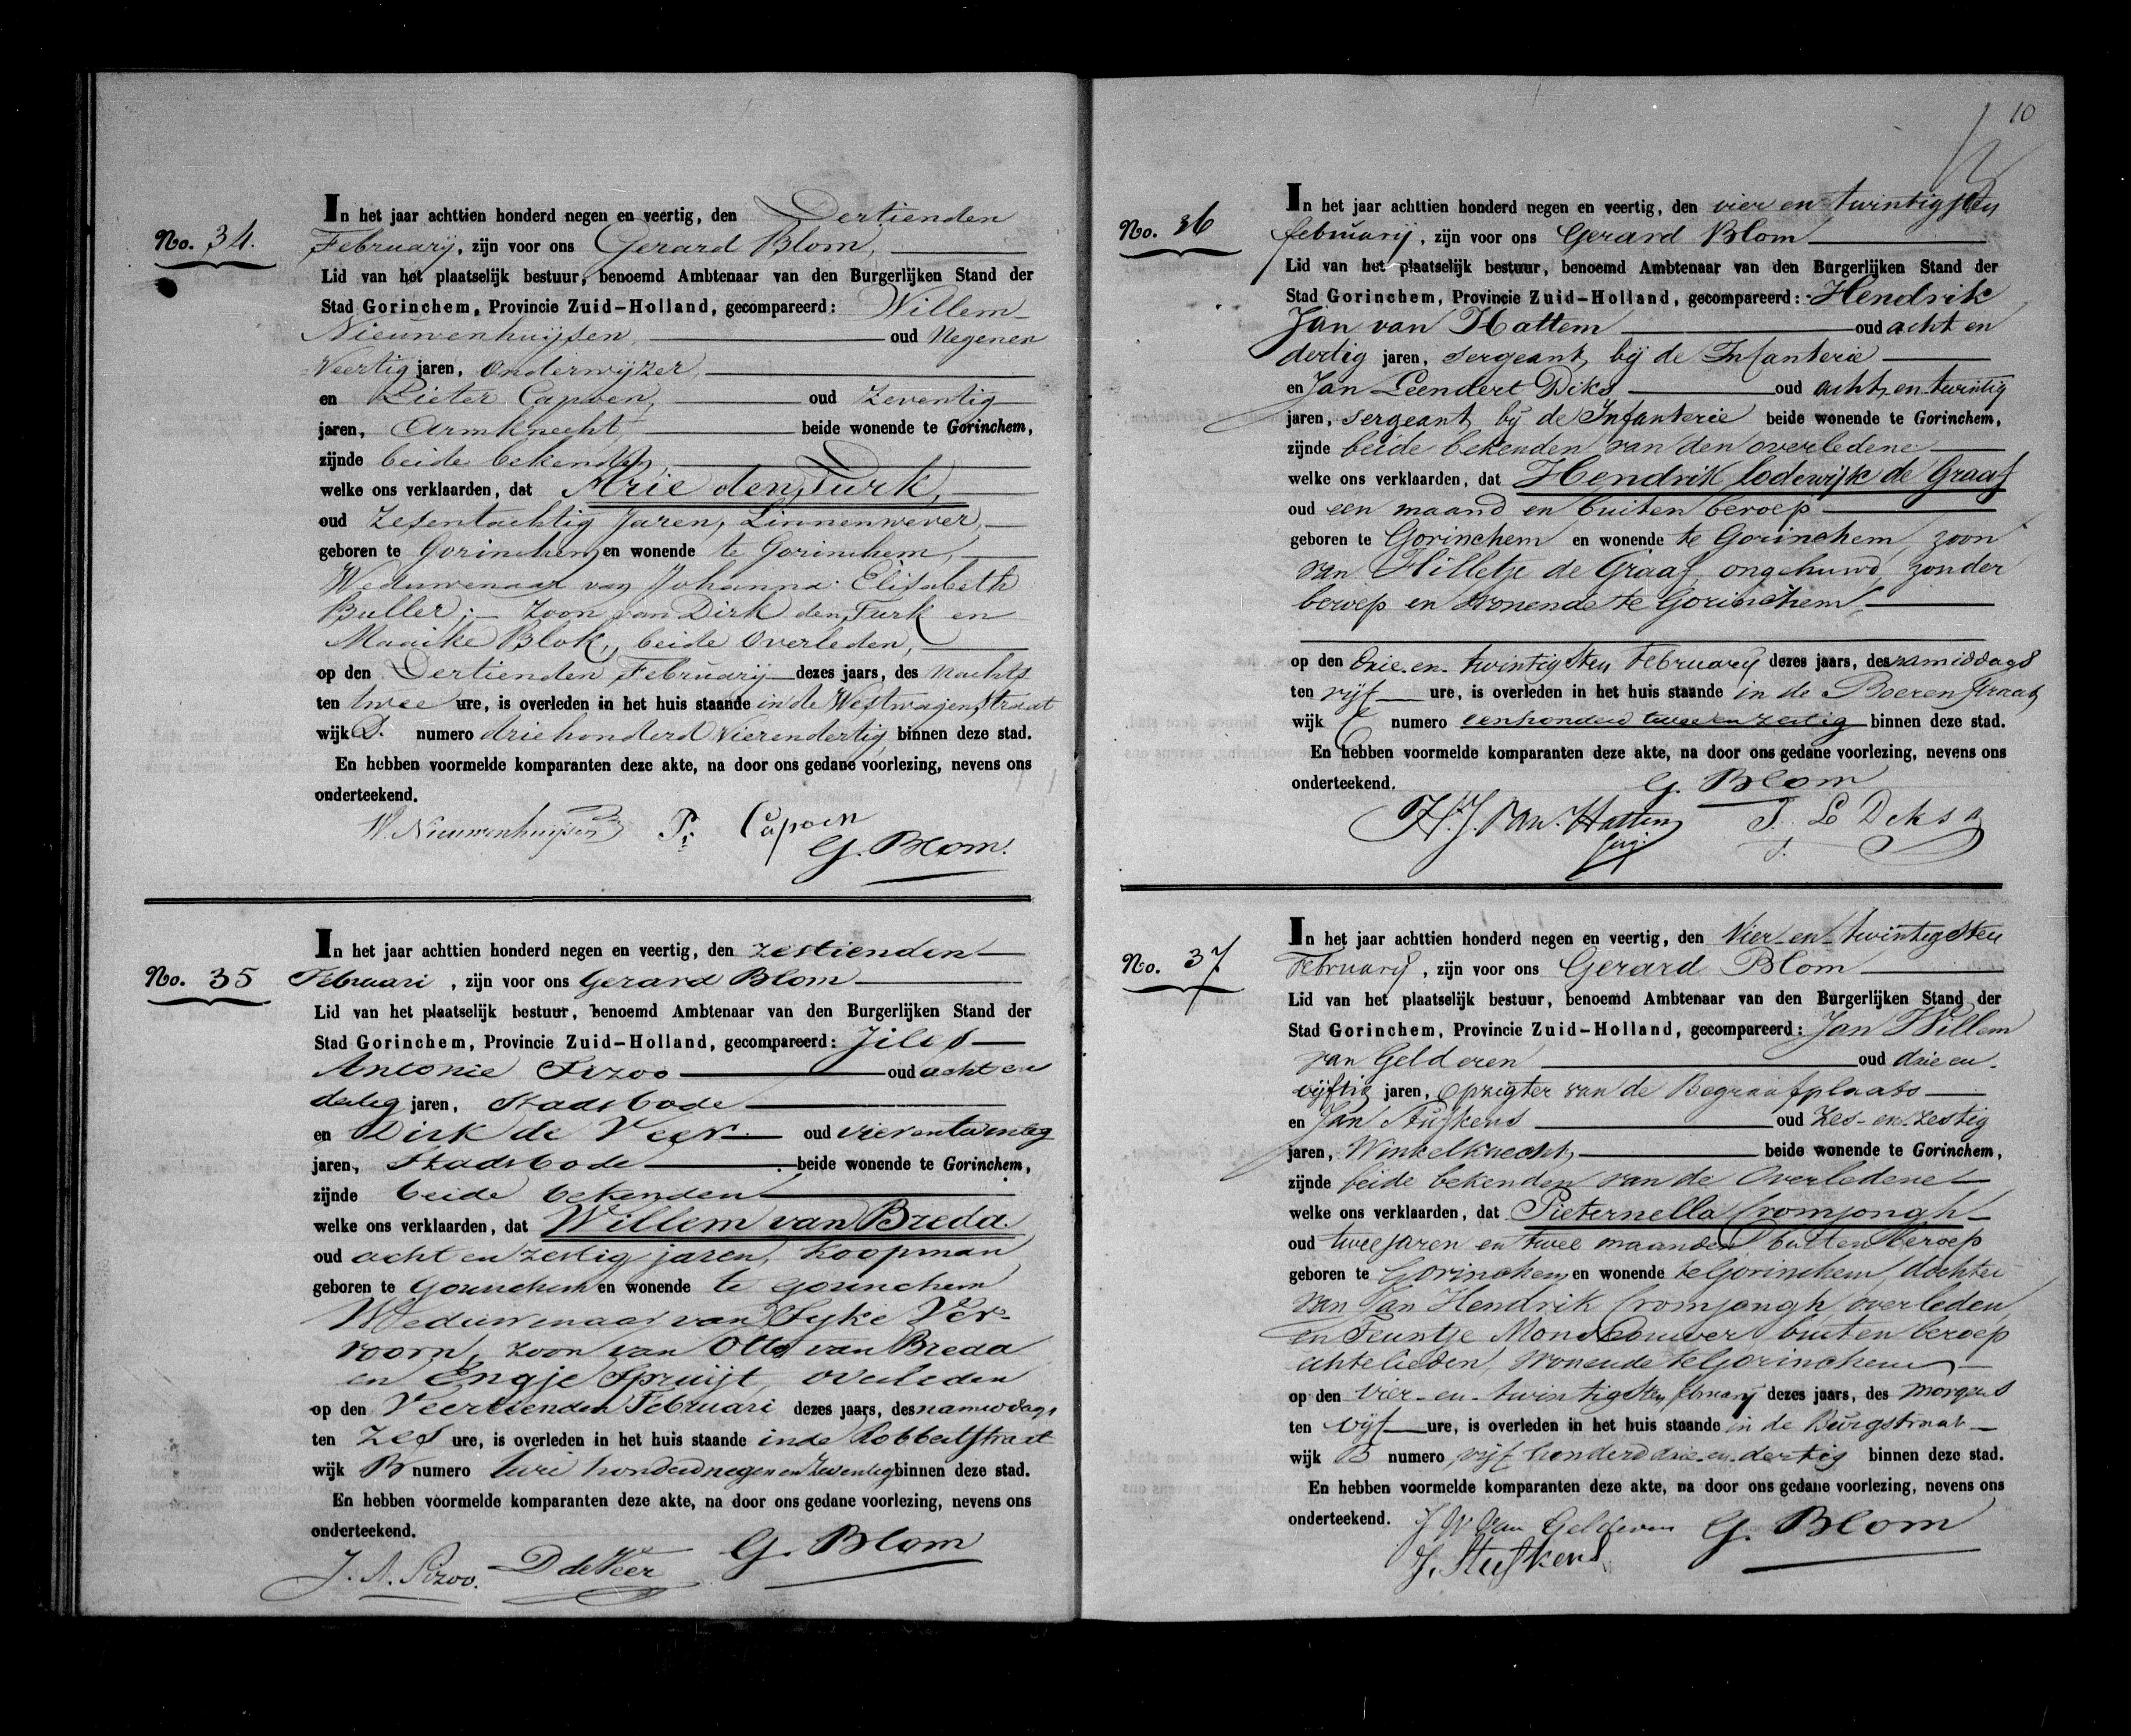 No. 34.
In het jaar achttien honderd negen en veertig, den Dertienden
February, zijn voor ons Gerard Blom,
Lid van het plaatselijk bestuur, benoemd Ambtenaar van den Burgerlijken Stand der
Stad Gorinchem, Provincie Zuid-Holland, gecompareerd: Willem
Nieuwenhuijsen, oud Negenen
Veertig jaren, Onderwijzer,
en Pieter Capoen, oud Zeventig
jaren, Armknecht, beide wonende te Gorinchem,
zijnde beide bekenden,
welke ons verklaarden, dat Arie den Turk,
oud Zesentachtig Jaren, Linnenwever,
geboren te Gorinchem, en wonende te Gorinchem,
Weduwenaar van Johanna Elisabeth
Buller; Zoon van Dirk den Turk en
Maaike Blok, beide Overleden,
op den Dertienden February dezes jaars, des Nachts
ten twee ure, is overleden in het huis staande in de Westwagenstraat
wijk D. numero driehonderd Vierendertig binnen deze stad.
En hebben voormelde komparanten deze akte, na door ons gedane voorlezing, nevens ons
onderteekend.
W. Nieuwenhuijsen P. Capoen
G. Blom.
No. 35
In het jaar achttien honderd negen en veertig, den zestienden
Februari, zijn voor ons Gerard Blom
Lid van het plaatselijk bestuur, benoemd Ambtenaar van den Burgerlijken Stand der
Stad Gorinchem, Provincie Zuid-Holland, gecompareerd: Jiles
Antonie Sizoo oud acht en
dertig jaren, Stadsbode
en Dirk de Veer oud vierentwintig
jaren, Stadsbode beide wonende te Gorinchem,
zijnde beide bekenden
welke ons verklaarden, dat Willem van Breda
oud acht en zestig jaren, Koopman
geboren te Gorinchem en wonende te Gorinchem
Weduwenaar van Sijke Ver=
voorn, zoon van Otto van Breda
en Engje Spruijt, overleden
op den Veertienden Februari dezes jaars, des namiddags
ten Zes ure, is overleden in het huis staande in de Robberstraat
wijk B numero twee honderd negen en zeventig binnen deze stad.
En hebben voormelde komparanten deze akte, na door ons gedane voorlezing, nevens ons
onderteekend.
J. A. Sizoo. D de Veer G. Blom
10
No. 36
In het jaar achttien honderd negen en veertig, den vier en twintigsten
februarij, zijn voor ons Gerard Blom
Lid van het plaatselijk bestuur, benoemd Ambtenaar van den Burgerlijken Stand der
Stad Gorinchem, Provincie Zuid-Holland, gecompareerd: Hendrik
Jan van Hattem oud acht en
dertig jaren, sergeant bij de Infanterie
en Jan Leendert Diks oud acht en twintig
jaren, sergeant bij de Infanterie beide wonende te Gorinchem,
zijnde beide bekenden van den overledene
welke ons verklaarden, dat Hendrik Lodewijk de Graaf
oud een maand en buiten beroep
geboren te Gorinchem en wonende te Gorinchem, zoon
van Hilletje de Graaf, ongehuwd, zonder
beroep en wonende te Gorinchem
op den drie-en-twintigsten February dezes jaars, des namiddags
ten vijf ure, is overleden in het huis staande in de Boerenstraat
wijk C numero eenhonderd twee en zestig binnen deze stad.
En hebben voormelde komparanten deze akte, na door ons gedane voorlezing, nevens ons
onderteekend. G. Blom
H. J. Van. Hattem J. L Diks
serg.
No. 37
In het jaar achttien honderd negen en veertig, den Vier-en-twintigsten
February, zijn voor ons Gerard Blom
Lid van het plaatselijk bestuur, benoemd Ambtenaar van den Burgerlijken Stand der
Stad Gorinchem, Provincie Zuid-Holland, gecompareerd: Jan Willem
van Gelderen oud drie en
vijftig jaren, Opzigter van de Begraafplaats
en Jan Stuijkens oud Zes-en-zestig
jaren, Winkelknecht, beide wonende te Gorinchem,
zijnde beide bekenden van de Overledene
welke ons verklaarden, dat Pieternella Cromjongh
oud twee jaren en twee maanden, buiten beroep
geboren te Gorinchem, en wonende te Gorinchem, dochter
van Jan Hendrik Cromjongh, overleden,
en Teuntje Mondbouwer buiten beroep
echtelieden, wonende te Gorinchem
op den vier-en-twintigsten february dezes jaars, des morgens
ten vijf ure, is overleden in het huis staande in de Burgstraat
wijk B numero vijf honderd drie-en-dertig binnen deze stad.
En hebben voormelde komparanten deze akte, na door ons gedane voorlezing, nevens ons
onderteekend. J W van Gelderen G. Blom
J. Stuijkens